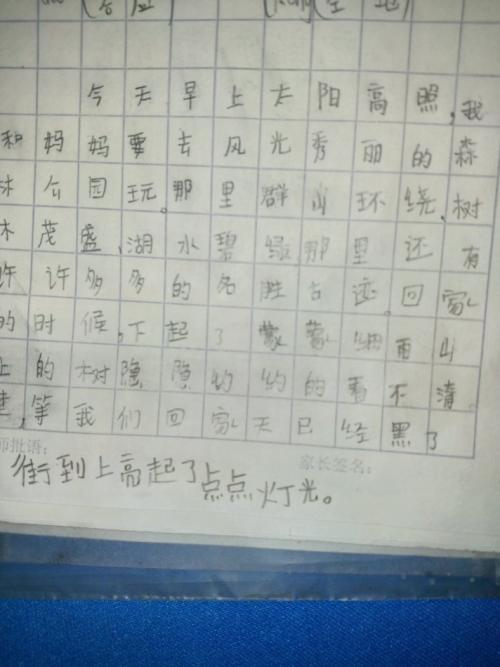 今天早上太阳高照,我
和妈妈要去风光秀丽的森
林公园玩。那里群山环绕,树
木茂盛,湖水碧绿,那里还有
许许多多的名胜古迹。回家
的时候,下起了蒙蒙细雨山
上的树隐隐约约的看不清
楚,等我们回家天已经黑了
师批语: 家长签名:
街到上亮起了点点灯光。